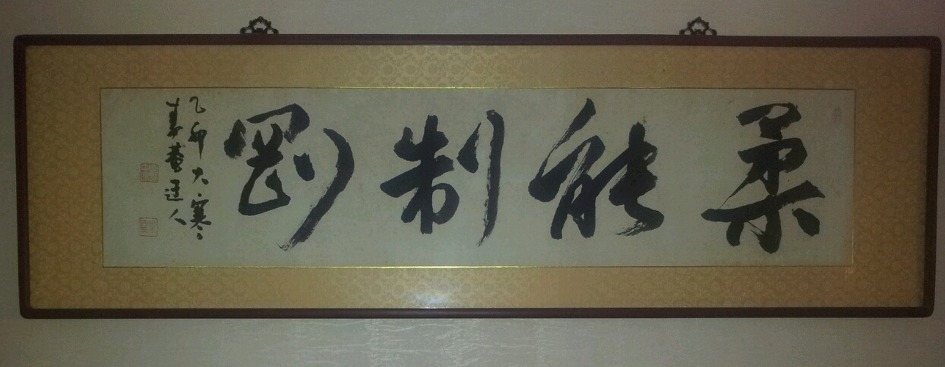 柔能制剛
乙卯大寒
道人